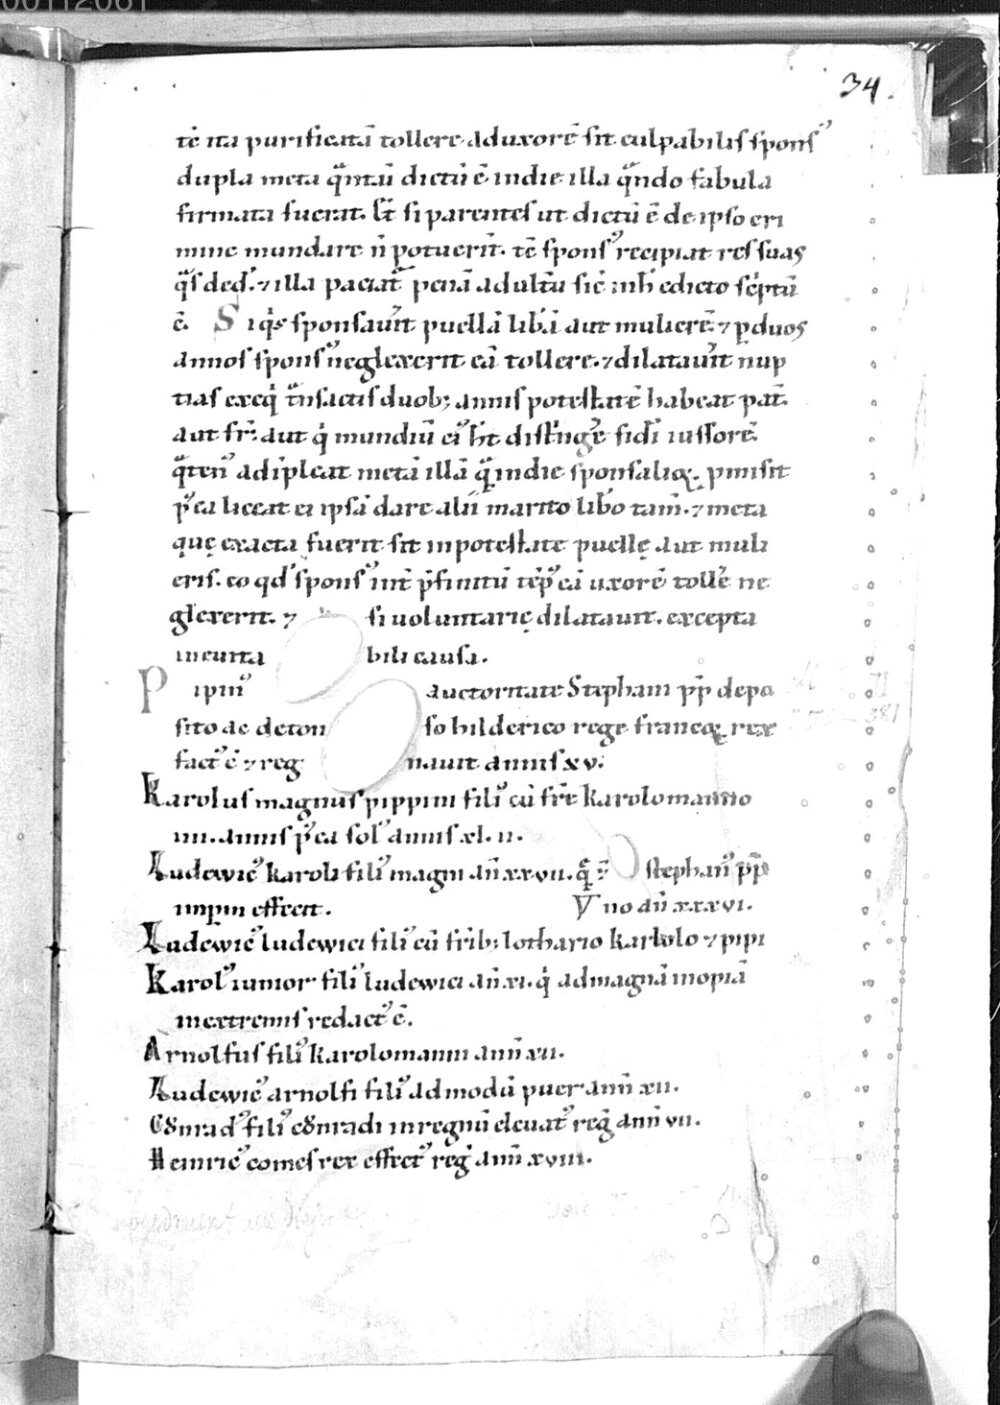 00112081
34.
tē ita purificatā tollere ad uxorē sit culpabilis spons᾽
dupla meta qᵃntū dictū ē in die illa qᵃndo fabula
firmata fuerat. Et si parentes ut dictū ē de ipso cri
mine mundare n̄ potuerīt. tē spons᾽ recipiat res suas
qᵃs ded᾽. ⁊ illa paciat᾽ penā adult̄ii sic̄ in h᾽ edicto sc̄ptū
ē. Si qⁱs sponsau᾽it puellā lib᾽ā aut mulierē. ⁊ ꝑ duos
annos spons᾽ neglexerit eā tollere. ⁊ dilatau᾽it nup
tias exeqⁱ tᵃnsactis duob; annis potestatē habeat pat᾽.
aut fr̄. aut qⁱ mundiū ei᾽ h̄t distⁱng᾽e fidī iussorē.
qᵃten᾽ adīpleat metā illā qᵃ in die sponsalioꝝ. ꝓmisit
p᾽ea liceat ei ipsā dare alii marito lib᾽o tam̄. ⁊ meta
quę exacta fuerit sit in potestate puellę aut muli
eris. eo qd᾽ spons᾽ int᾽ p̄finitū tēp᾽ eā uxorē toll᾽e ne
glexerit. ⁊ si uoluntarię dilatauit. excepta
ineuita bili causa.
Pipin᾽ auctoritate Stephani pp̄ depo
sito ac deton so hilderico rege francoꝝ rex
fact᾽ ē ⁊ reg nauit annis xv.
Karolus magnus pippini fili᾽ cū fr̄e karolomanno
iiii. annis p᾽ea sol᾽ annis xl. ii.
Ludewic᾽ karoli fili᾽ magni an̄ xxvii. qⁱ Stephan᾽ pp̄
imꝑiū effecit. V no an̄ xxxvi.
Ludewic᾽ ludewici fili᾽ cū frib; lothario karlolo ⁊ pipi
Karol᾽ iunior fili᾽ ludewici an̄ xi. qⁱ ad magnā inopiā
in extremis redact᾽ ē.
Arnolfus fili᾽ karolomanni ann̄ xii.
Ludewic᾽ arnolfi fili᾽ admodū puer ann̄ xii.
Cōnrad᾽ fili᾽ cōnradi in regnū eleuat᾽ reg᾽ ann̄ vii.
Heinric᾽ comes rex effect᾽ reg᾽ ann̄ xviii.